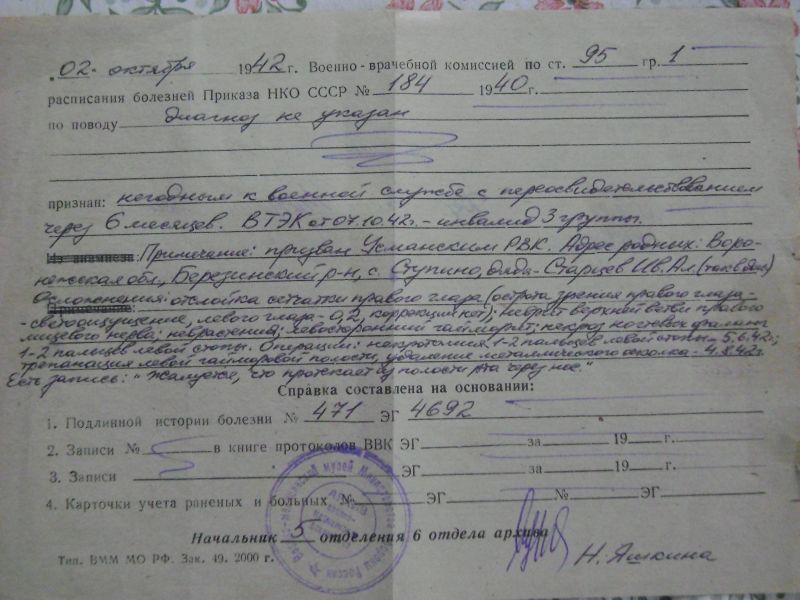 "02" октября 1942 г. Военно-врачебной комиссией по ст. 95 гр. 1
расписания болезней Приказа НКО СССР № 184 1940 г.
по поводу диагноз не указан
признан: негодным к военной службе с переосвидетельствованием
через 6 месяцев. ВТЭК от 07.10.42.- инвалид 3 группы.
Из анамнеза: Примечание: призван Усманским РВК. Адрес родных: Воро-
нежская обл., Березинский р-н, с. Ступино, дядя- Старцев Ив. Ал. (так в док)
Осложнения: отслойка сетчатки правого глаза (острота зрения правого глаза-
-светоощущение, левого глаза- 0,2, коррекции нет); неврит верхней ветви правого
лицевого нерва; неврастения; левосторонний гайморит; некроз ногтевых фаланг
1-2 пальцев левой стопы. Операции: некротомия 1-2 пальцев левой стопы- 5.6.42г;
трепанация левой гайморовой полости, удаление металлического осколка- 4.8.42г.
Есть запись: "Жалуется, что протекает из полости рта через нос."
Справка составлена на основании:
1. Подлинной истории болезни № 471 ЭГ 4692
2. Записи № в книге протоколов ВВК ЭГ за 19 г.
3. Записи ЭГ за 19 г.
4. Карточки учета раненых и больных № ЭГ № ЭГ
Начальник 5 отделения 6 отдела архива
Н. Яшкина
Тип. ВММ МО РФ. Зак. 49. 2000 г.